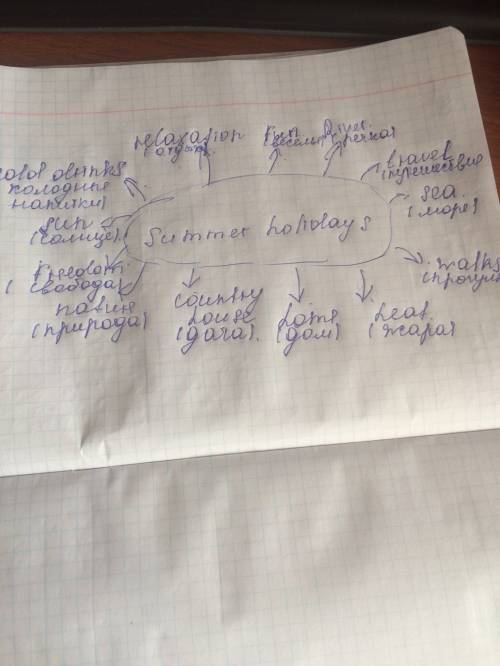 relaxation
(отдых)
Fun
(веселье)
River
(речка)
travel
(путешествие)
sea
(море)
walks
(прогул
heat
(жара)
home
(дом)
country
house
(дача)
nature
(природа)
Freedom
(свобода)
sun
(солнце)
cold drinks
холодные
напитки)
Summer holidays